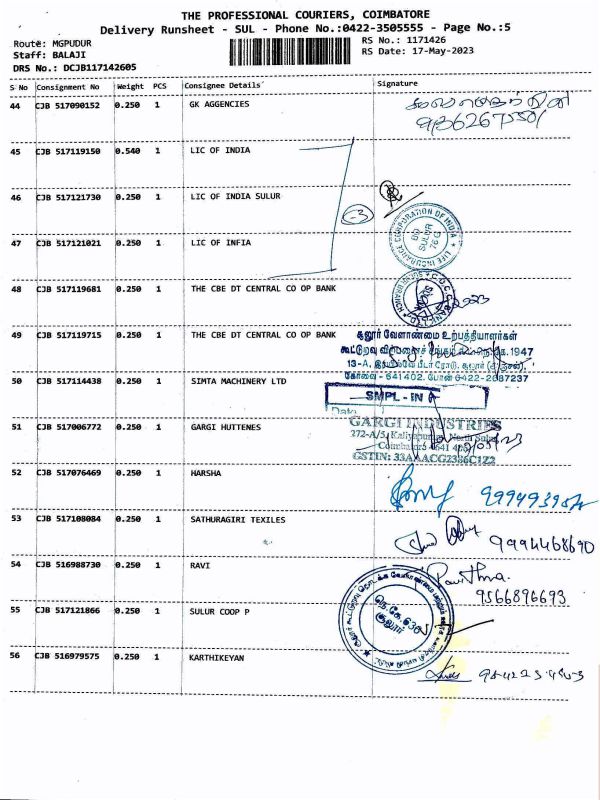 THE PROFESSIONAL COURIERS, COIMBATORE
Delivery Runsheet - SUL - Phone No.:0422-3505555 - Page No.:5
Route: MGPUDUR
RS No.: 1171426
Staff: BALAJI
RS Date: 17-May-2023
DRS No.: DCJB117142605
S No Consignment No Weight PCS Consignee Details Signature
44 CJB 517090152 0.250 1 GK AGGENCIES
45 CJB 517119150 0.540 1 LIC OF INDIA
46 CJB 517121730 0.250 1 LIC OF INDIA SULUR
LIFE INSURANCE CORPORATION OF INDIA
BO
SULUR
76 G
47 CJB 517121021 0.250 1 LIC OF INFIA
48 CJB 517119681 0.250 1 THE CBE DT CENTRAL CO OP BANK
49 CJB 517119715 0.250 1 THE CBE DT CENTRAL CO OP BANK
சூலூர் வேளாண்மை உற்பத்தியாளர்கள்
கூட்டுறவு
1947
13-A,
கோவை - 641402. போன் 0422-2687237
50 CJB 517114438 0.250 1 SIMTA MACHINERY LTD
SMPL - IN
Date
51 CJB 517006772 0.250 1 GARGI HUTTENES
GARGI INDUSTRIES
272-A/5, Kaliyapuram, North Sulur
Coimbatore 641
GSTIN: 33AAACG2336C1Z2
52 CJB 517076469 0.250 1 HARSHA
53 CJB 517108084 0.250 1 SATHURAGIRI TEXILES
9994468690
54 CJB 516988730 0.250 1 RAVI
Pavithra.
9566896693
55 CJB 517121866 0.250 1 SULUR COOP P
சூலூர்
56 CJB 516979575 0.250 1 KARTHIKEYAN